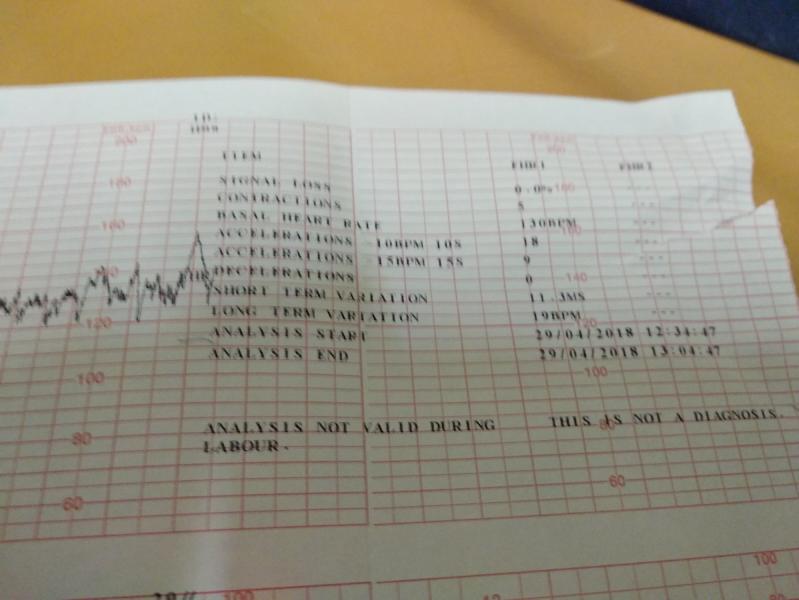 ITEM FHR1 FHR2
SIGNAL LOSS 0.0% ---
CONTRACTIONS 5
BASAL HEART RATE 130BPM ---
ACCELERATIONS 10BPM 10S 18 ---
ACCELERATIONS 15BPM 15S 9 ---
DECELERATIONS 0 ---
SHORT TERM VARIATION 11.3MS ---
LONG TERM VARIATION 19BPM ---
ANALYSIS START 29/04/2018 12:34:47
ANALYSIS END 29/04/2018 13:04:47
ANALYSIS NOT VALID DURING THIS IS NOT A DIAGNOSIS.
LABOUR.
200 200
180 180
160 160
140 140
120 120
100 100
80 80
60 60
100 100